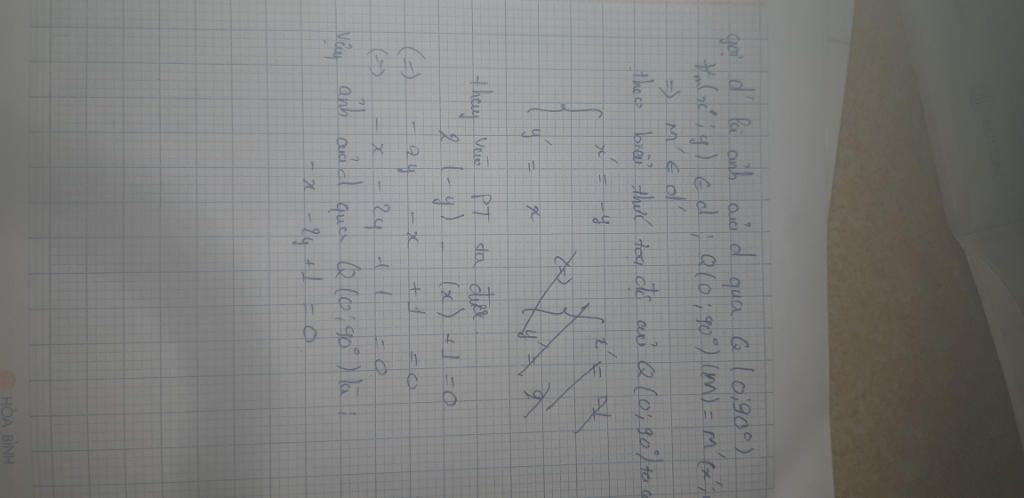 gọi d' là ảnh của d qua Q (0;90°)
∀m(x;y) ∈ d ; Q(0;90°)(M) = M'(x';
=) M' ∈ d'
theo biểu thức toạ độ của Q (0;90°) ta
{ x' = -y
y' = x
(=) { x' =
y' =
thay vào PT ta được
2 (-y) - (x) + 1 = 0
(=) -2y - x + 1 = 0
(=) -x - 2y + 1 = 0
Vậy ảnh của d qua Q (0;90°) là :
-x - 2y + 1 = 0
HÒA BÌNH